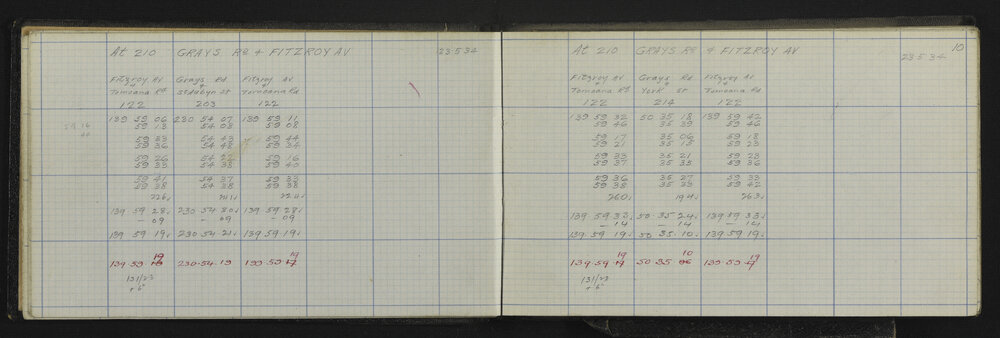 At 210 GRAYS Rd + FITZROY AV 23·5·34
Fitzroy Av Grays Rd Fitzroy Av
+ + +
Tomoana Rd St Aubyn St Tomoana Rd
122 203 122
139 59 06 230 54 07 139 59 11
59 18 54 08 59 08
59 33 54 43 59 44
59 36 54 48 59 34
59 26 54 22 59 16
59 33 54 38 59 40
59 41 54 37 59 33
59 38 54 38 59 38
139 59 28 230 54 30 139 59 28
- 09 - 09 - 09
139 59 19 230 54 21 139 59 19
19 19
139·59· 230·54·19 139·59·17
131/23
+ 6"
10
At 210 GRAYS Rd + FITZROY AV 23·5·34
Fitzroy Av Grays Rd Fitzroy Av
+ + +
Tomoana Rd York St Tomoana Rd
122 214 122
139 59 32 50 35 18 139 59 42
59 46 35 39 59 46
59 17 35 06 59 18
59 21 35 15 59 23
59 33 35 21 59 28
59 37 35 35 59 36
59 36 35 27 59 33
59 38 35 33 59 42
260 194 263
139 59 33 50 35 24 139 59 33
- 14 - 14 - 14
139 59 19 50 35 10 139 59 19
19 10 19
139·59·17 50·35·06 139·59·17
131/23
+ 6"